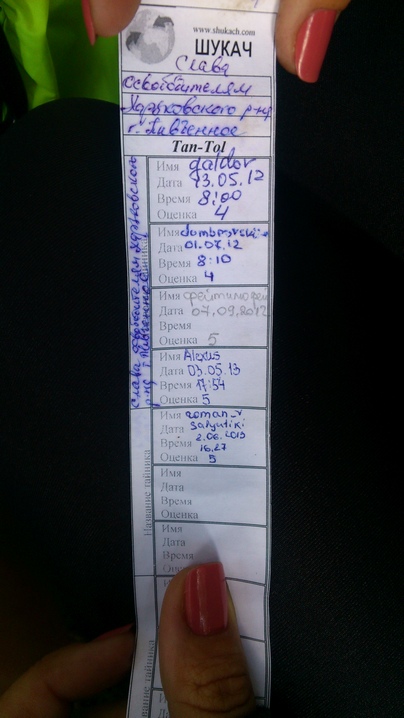 www.shukach.com
ШУКАЧ
Слава
освободителям
Харьковского р-на
г. Южное
Tan-Tol
Имя galdor
Дата 13.05.12
Время 8:00
Оценка 4
Имя dombrovski
Дата 01.07.12
Время 8:10
Оценка 4
Имя
Дата 07.09.2012
Время
Оценка 5
Имя Alexus
Дата 03.05.13
Время 17:54
Оценка 5
Имя roman_v
Дата Salyutiki
2.06.2013
Время 16.27
Оценка 5
Имя
Дата
Время
Оценка
Имя
Дата
Время
Название тайника
Название тайника